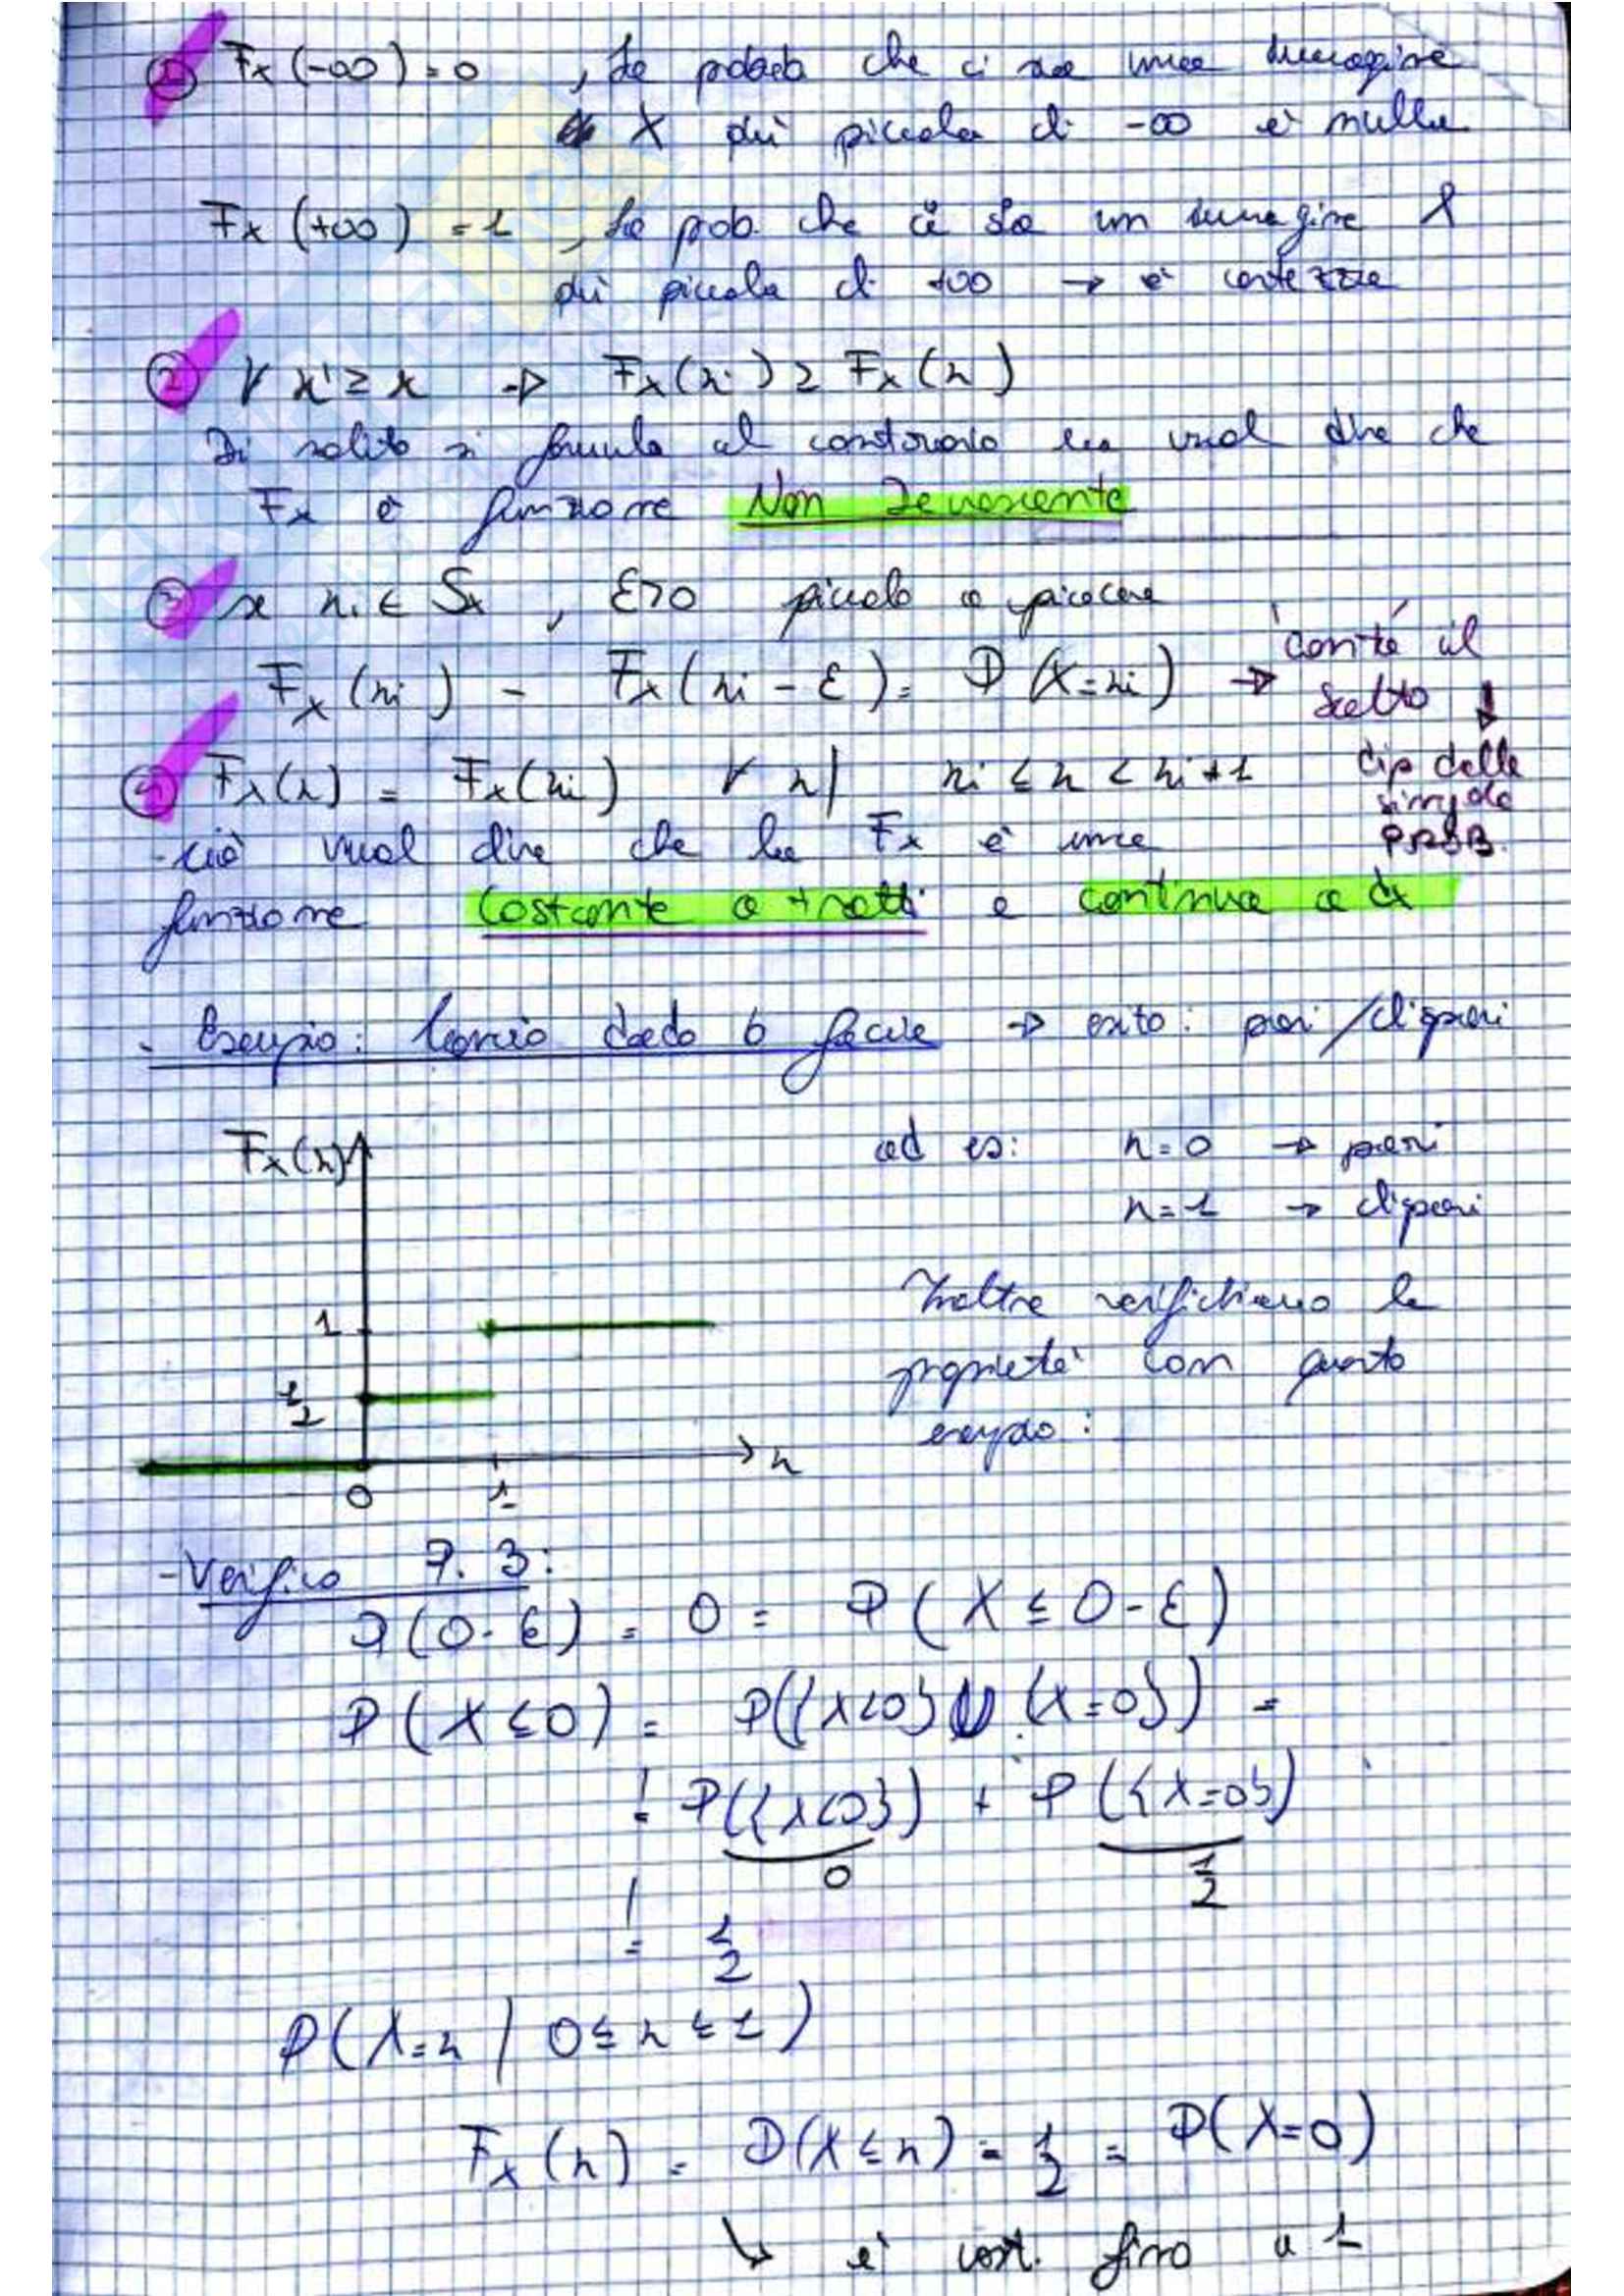 ① Fx (-∞) = 0 , la probab che ci sia una immagine
X più piccola di -∞ è nulla
Fx (+∞) = 1 , la prob. che ci sia un immagine X
più piccola di +∞ → è certezza
② ∀ x' ≥ x → Fx(x') ≥ Fx(x)
Di solito si formula al contrario ma vuol dire che
Fx è funzione Non Decrescente
③ se xi ∈ Sx , ε>0 piccolo a piacere
Fx (xi) - Fx (xi - ε) = P (X=xi) → com'è il
salto ↓
dip delle
singole
PROB.
④ Fx(x) = Fx(xi) ∀ x | xi ≤ x < xi+1
-ciò vuol dire che la Fx è una
funzione Costante a tratti e continua a dx
- Esempio: lancio dado 6 facce → esito: pari/dispari
Fx(x)
ad es: x=0 → pari
x=1 → dispari
1
1/2
0 1 x
Inoltre verifichiamo le
proprietà con questo
esempio:
- Verifico P. 3:
P(0-ε) = 0 = P (X ≤ 0-ε)
P (X ≤ 0) = P({X<0} U {X=0}) =
= P({X<0}) + P({X=0})
0 1/2
= 1/2
P(X=x | 0≤x≤1)
Fx (x) = P(X≤x) = 1/2 = P(X=0)
↳ è cost. fino a 1